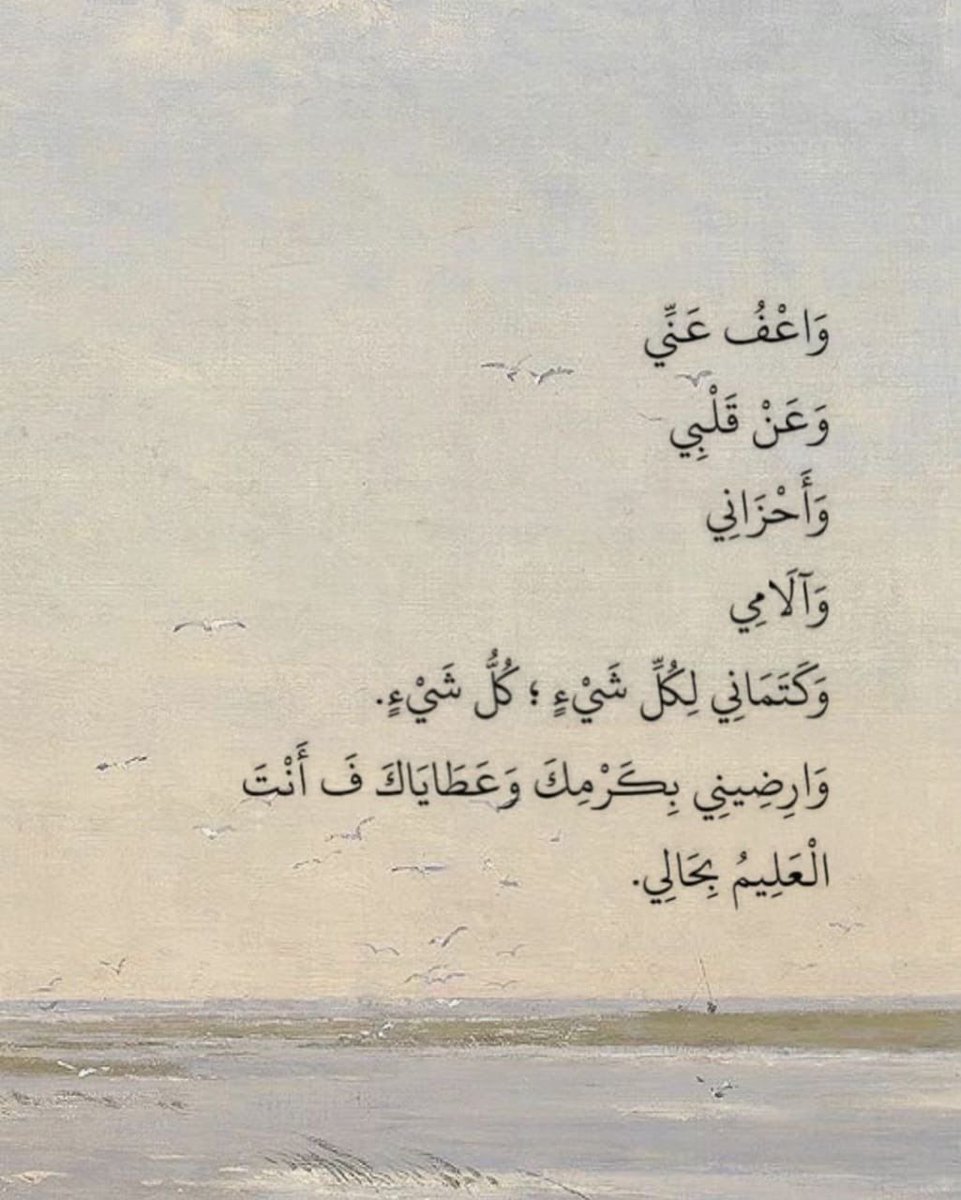 وَاعْفُ عَنِّي
وَعَنْ قَلْبِي
وَأَحْزَانِي
وَآلَامِي
وَكَتَمَانِي لِكُلِّ شَيْءٍ ؛ كُلُّ شَيْءٍ.
وَارِضِينِي بِكَرْمِكَ وَعَطَايَاكَ فَ أَنْتَ
الْعَلِيمُ بِحَالِي.